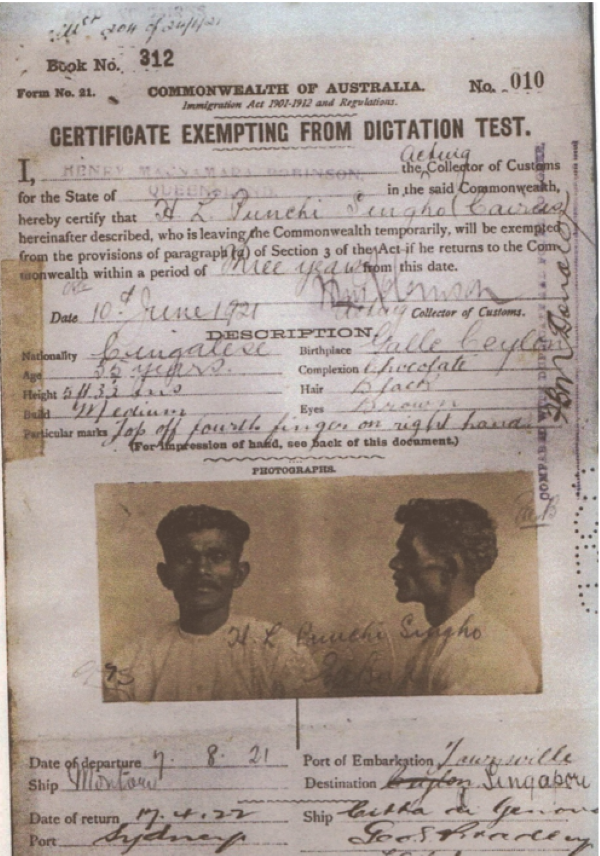 204 of 24/1/21
Book No. 312
Form No. 21. COMMONWEALTH OF AUSTRALIA. No. 010
Immigration Act 1901-1912 and Regulations.
CERTIFICATE EXEMPTING FROM DICTATION TEST.
I, HENRY ROBINSON. the Acting Collector of Customs
for the State of QUEENSLAND in the said Commonwealth,
hereby certify that H L Punchi Singho (Cairns)
hereinafter described, who is leaving the Commonwealth temporarily, will be exempted
from the provisions of paragraph (a) of Section 3 of the Act if he returns to the Com-
monwealth within a period of Three years from this date.
Date 10th June 1921 Acting Collector of Customs.
DESCRIPTION.
Nationality Cingalese Birthplace Galle Ceylon
Age 35 years. Complexion Chocolate
Height Hair Black
Build Medium Eyes Brown
Particular marks Top off fourth finger on right hand
(For impression of hand, see back of this document.)
PHOTOGRAPHS.
H L Punchi Singho
Date of departure 7. 8. 21 Port of Embarkation Townsville
Ship Destination Ceylon Singapore
Date of return 17.4.22 Ship
Port Sydney